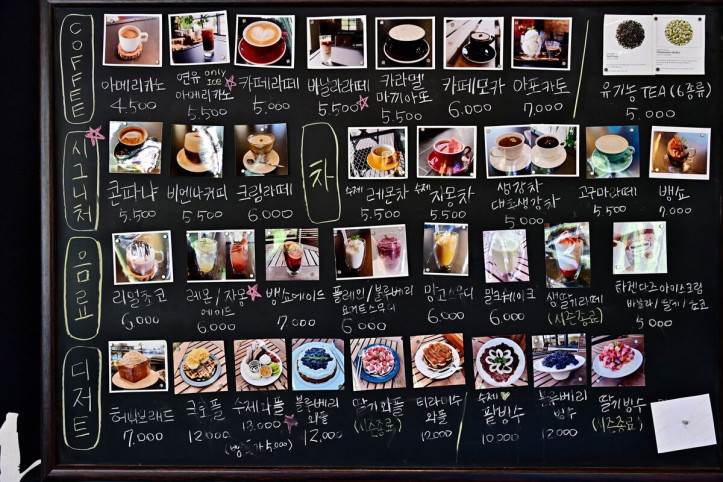 COFFEE
아메리카노
4.500
연유 only ICE
아메리카노
5.500
카페라떼
5.000
바닐라라떼
5.500
카라멜
마끼아또
5.500
카페모카
6.000
아포카토
7.000
유기농 TEA (6종류)
5.000
시그니처
콘파냐
5.500
비엔나커피
5.500
크림라떼
6.000
차
수제 레몬차
5.500
수제 자몽차
5.500
생강차
대추생강차
5.000
고구마라떼
5.500
뱅쇼
7.000
음료
리얼초코
6.000
레몬/자몽
에이드
6.000
뱅쇼에이드
7.000
플레인/블루베리
요거트스무디
6.000
망고스무디
6.000
밀크쉐이크
6.000
생딸기라떼
(시즌종료)
하겐다즈아이스크림
바닐라/딸기/쵸코
5.000
디저트
허니브래드
7.000
크로플
12000
수제와플
13.000
블루베리
와플
12,000
딸기와플
(시즌종료)
티라미수
와플
12.000
수제
팥빙수
10.000
블루베리
빙수
12.000
딸기빙수
(시즌종료)